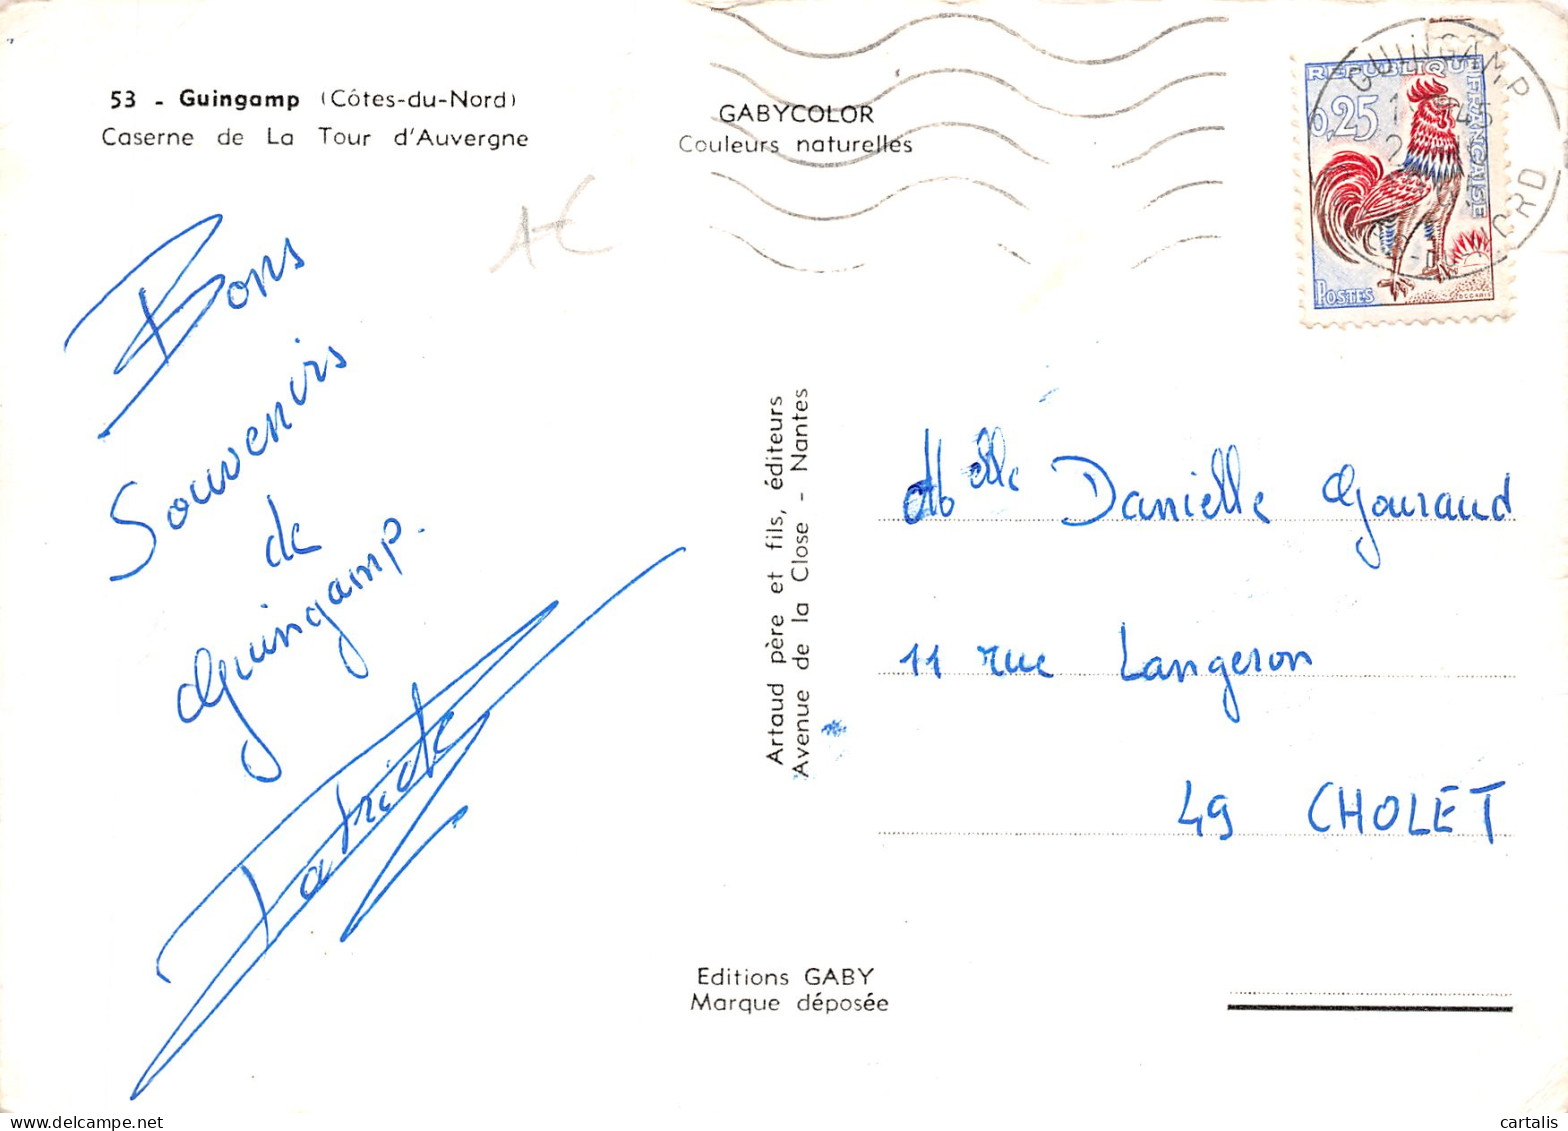 53 - Guingamp (Côtes-du-Nord)
Caserne de La Tour d'Auvergne
GABYCOLOR
Couleurs naturelles
GUINGAMP
RÉPUBLIQUE FRANÇAISE
0,25
POSTES
DECARIS
1€
Bons
Souvenirs
de
Guingamp.
Patrick
Artaud père et fils, éditeurs
Avenue de la Close - Nantes
Melle Danielle Gouraud
11 rue Langeron
49 CHOLET
Editions GABY
Marque déposée
delcampe.net
cartalis